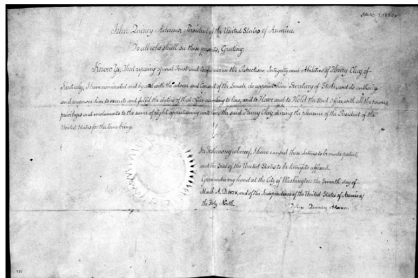 John Quincy Adams, President of the United States of America,
To all who shall see these presents, Greeting:
Know Ye, That reposing special Trust and Confidence in the Patriotism, Integrity and Abilities of Henry Clay, of
Kentucky, I have nominated and by and with the advice and Consent of the Senate, do appoint him Secretary of State, and do authorize
and empower him to execute and fulfil the duties of that Office according to law; and to Have and to Hold the said Office, with all the powers,
privileges and emoluments to the same of right appertaining unto him the said Henry Clay, during the pleasure of the President of the
United States for the time being.
In testimony whereof, I have caused these Letters to be made patent,
and the Seal of the United States to be hereunto affixed.
Given under my hand at the City of Washington the Seventh day of
March A.D. 1825, and of the Independence of the United States of America,
the Forty Ninth.
John Quincy Adams